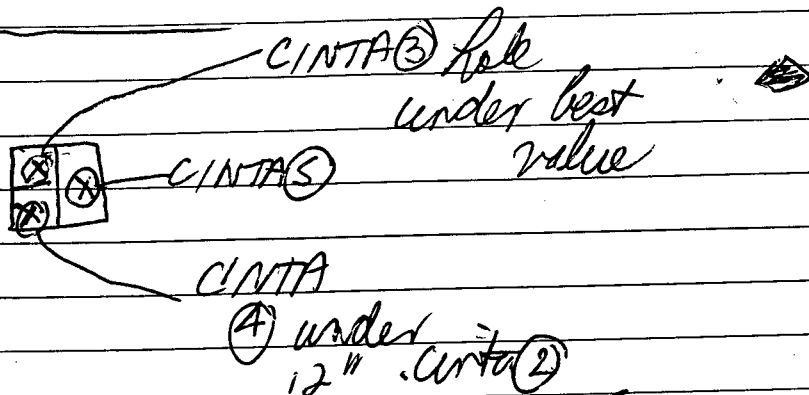 CINTA ③ hole
under best
value
CINTA ⑤
CINTA
④ under
12" . Cinta ②